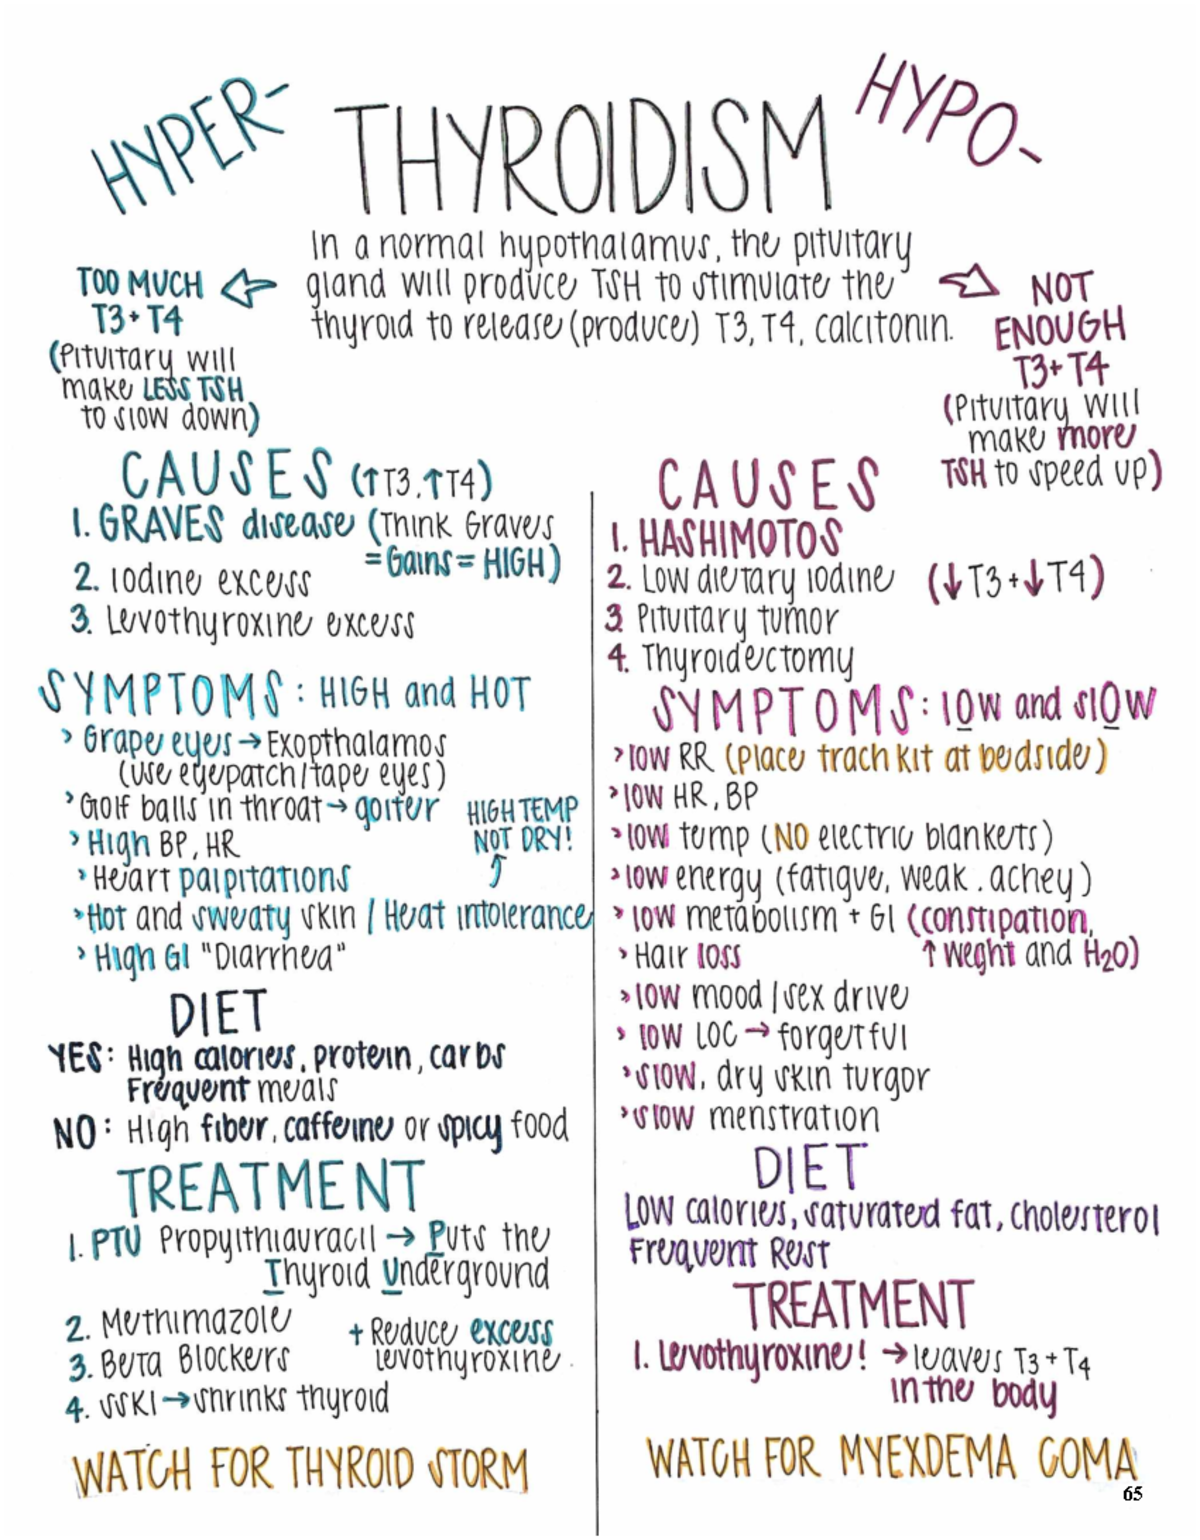 HYPER-
THYROIDISM
HYPO-
In a normal hypothalamus, the pituitary
gland will produce TSH to stimulate the
thyroid to release (produce) T3, T4, calcitonin.
TOO MUCH
T3+T4
(Pituitary will
make LESS TSH
to slow down)
NOT
ENOUGH
T3+T4
(Pituitary will
make more
TSH to speed up)
CAUSES (↑T3, ↑T4)
1. GRAVES disease (Think Graves
=Gains=HIGH)
2. Iodine excess
3. Levothyroxine excess
SYMPTOMS: HIGH and HOT
> Grape eyes → Exopthalamos
(use eyepatch/tape eyes)
> Golf balls in throat → goiter
HIGH TEMP
NOT DRY!
> High BP, HR
> Heart palpitations
> Hot and sweaty skin / Heat intolerance
> High GI "Diarrhea"
DIET
YES: High calories, protein, carbs
Frequent meals
NO: High fiber, caffeine or spicy food
TREATMENT
1. PTU Propylthiauracil → Puts the
Thyroid Underground
2. Methimazole
3. Beta Blockers
4. SSKI → shrinks thyroid
+ Reduce excess
levothyroxine.
WATCH FOR THYROID STORM
CAUSES
1. HASHIMOTOS
2. Low dietary iodine (↓T3+↓T4)
3. Pituitary tumor
4. Thyroidectomy
SYMPTOMS: low and slow
> low RR (Place trach kit at bedside)
> low HR, BP
> low temp (NO electric blankets)
> low energy (fatigue, weak. achey)
> low metabolism + GI (constipation,
↑ weght and H2O)
> Hair loss
> low mood / sex drive
> low LOC → forgetful
> slow, dry skin turgor
> slow menstration
DIET
Low calories, saturated fat, cholesterol
Frequent Rest
TREATMENT
1. Levothyroxine! → leaves T3+T4
in the body
WATCH FOR MYEXDEMA COMA
65